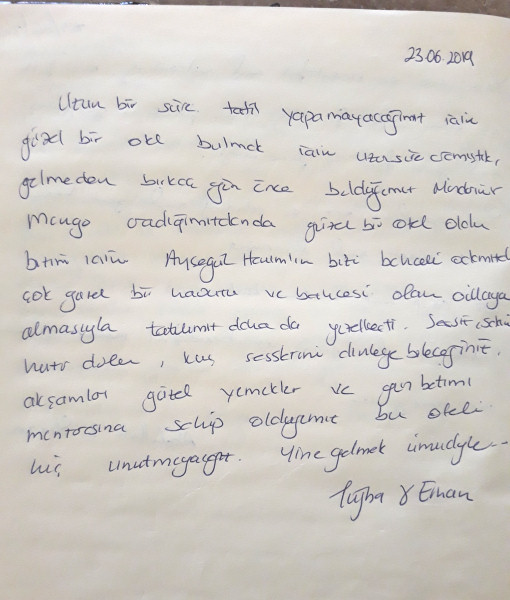 23.06.2019
Uzun bir süre tatil yapamayacağımız için
güzel bir otel bulmak için uzun süre
gelmeden birkaç gün önce bulduğumuz
Mango aradığımızdanda güzel bir otel oldu
bizim için Ayşegül Hanım'ın bizi bahçeli
çok güzel bir havuzu ve bahçesi olan villaya
almasıyla tatilimiz daha da güzelleşti.
huzur dolu, kuş seslerini dinleyebileceğiniz,
akşamları güzel yemekler ve gün batımı
manzarasına sahip olduğumuz bu oteli
hiç unutmayacağız. Yine gelmek ümidiyle...
Tuğba & Erhan